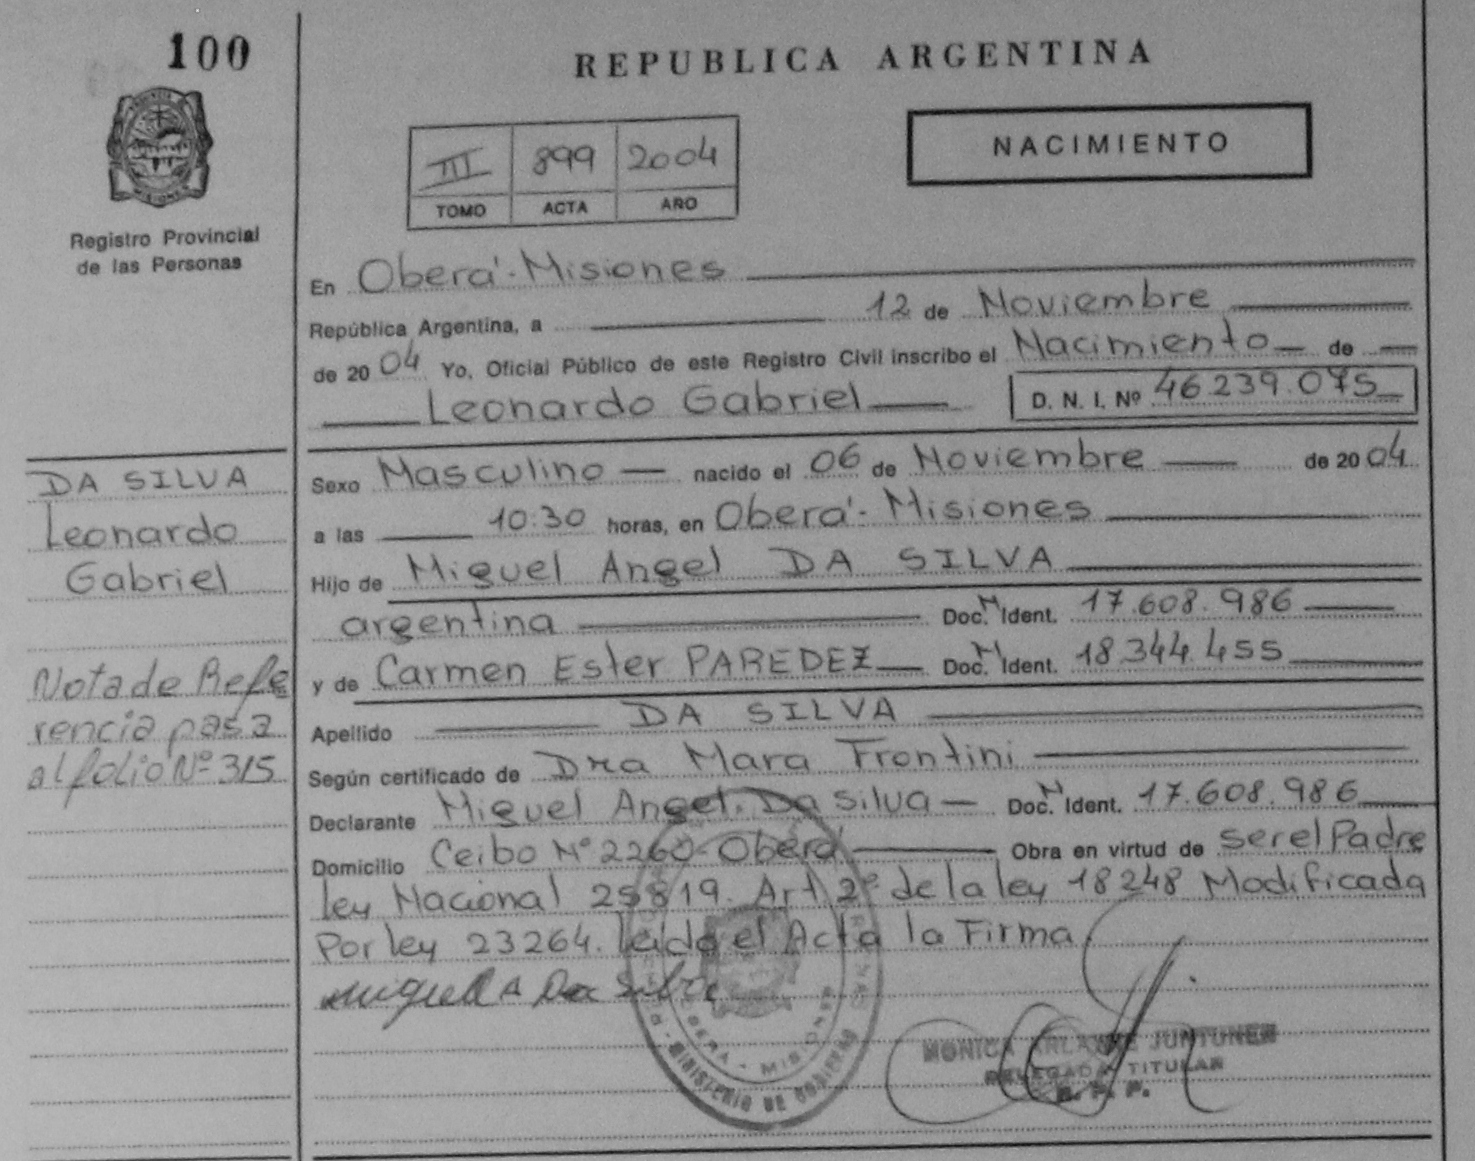 100
REPUBLICA ARGENTINA
NACIMIENTO
III 899 2004
TOMO ACTA AÑO
Registro Provincial
de las Personas
En Oberá - Misiones
República Argentina, a 12 de Noviembre
de 2004 Yo, Oficial Público de este Registro Civil inscribo el Nacimiento de
Leonardo Gabriel D. N. I. Nº 46.239.075
DA SILVA
Leonardo
Gabriel
Nota de Refe
rencia pasa
al folio Nº 315
Sexo Masculino nacido el 06 de Noviembre de 2004
a las 10:30 horas, en Oberá - Misiones
Hijo de Miguel Angel DA SILVA
argentina Doc. N Ident. 17.608.986
y de Carmen Ester PAREDEZ Doc. N Ident. 18.344.455
Apellido DA SILVA
Según certificado de Dra Mara Frontini
Declarante Miguel Angel Da Silva Doc. N Ident. 17.608.986
Domicilio Ceibo Nº 2260 - Oberá Obra en virtud de ser el Padre
ley Nacional 25819. Art 2º de la ley 18248 Modificada
Por ley 23264. leida el Acta la Firma
Miguel A Da Silva
MINISTERIO DE GOBIERNO
OBERA - MISIONES
MONICA JUNTUNEN
DELEGADA TITULAR
R. P. P.